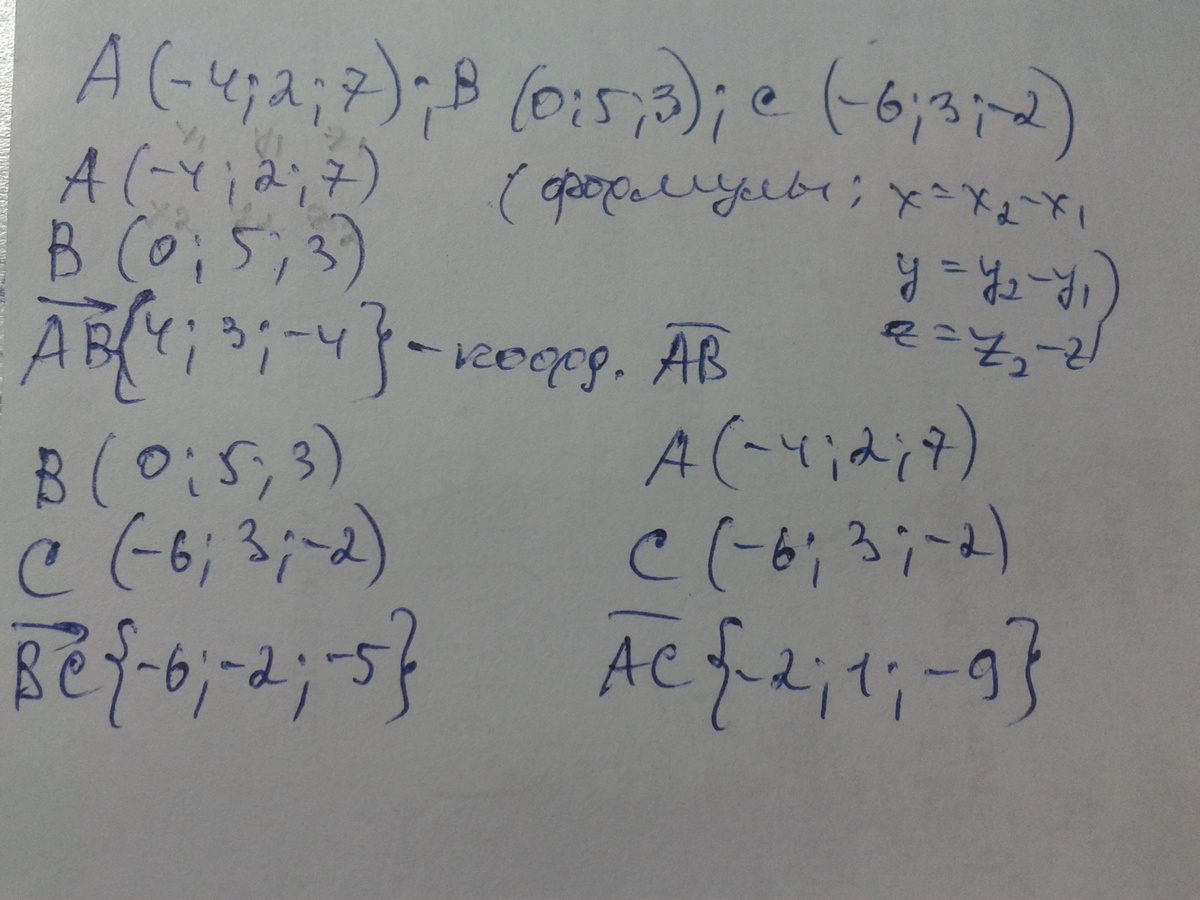 A (-4; 2; 7); B (0; 5; 3); C (-6; 3; -2)
A (-4; 2; 7) (формулы: x = x₂-x₁
B (0; 5; 3) y = y₂-y₁)
AB{4; 3; -4} - коорд. AB z = z₂-z
B (0; 5; 3) A (-4; 2; 7)
C (-6; 3; -2) C (-6; 3; -2)
BC{-6; -2; -5} AC{-2; 1; -9}